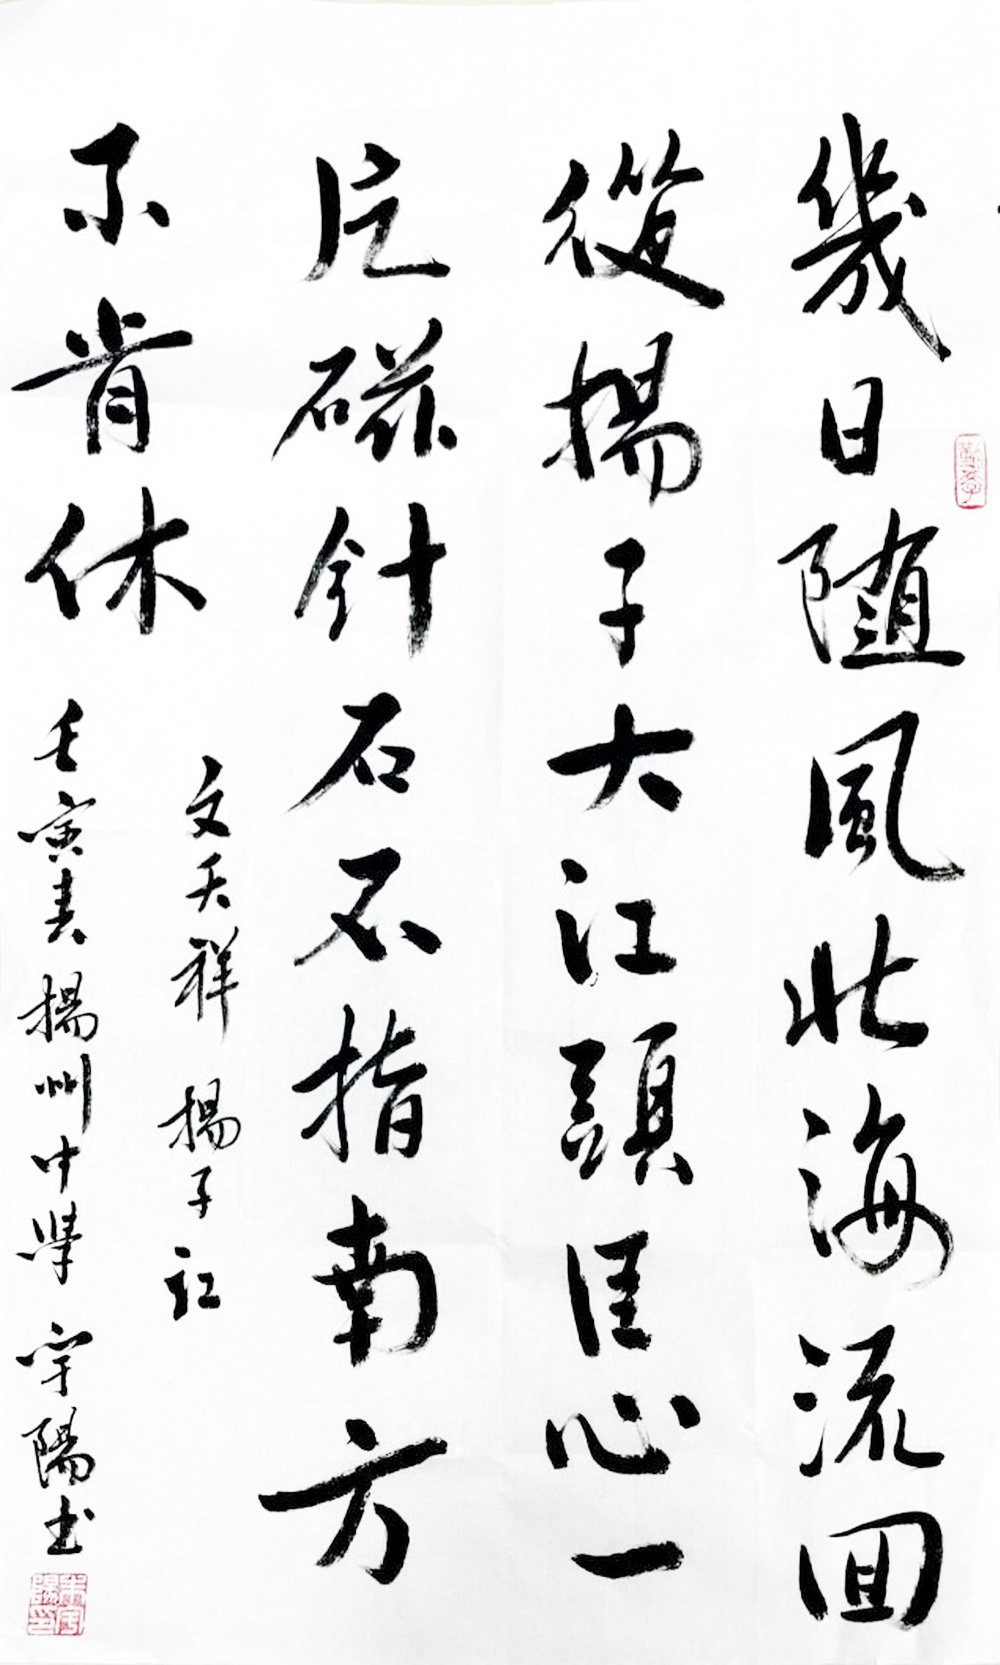 幾日随風北海流回
從揚子大江頭臣心一
片磁針石不指南方
不肯休
文天祥 揚子江
壬寅春揚州中學 宇陽书
朱宇陽印